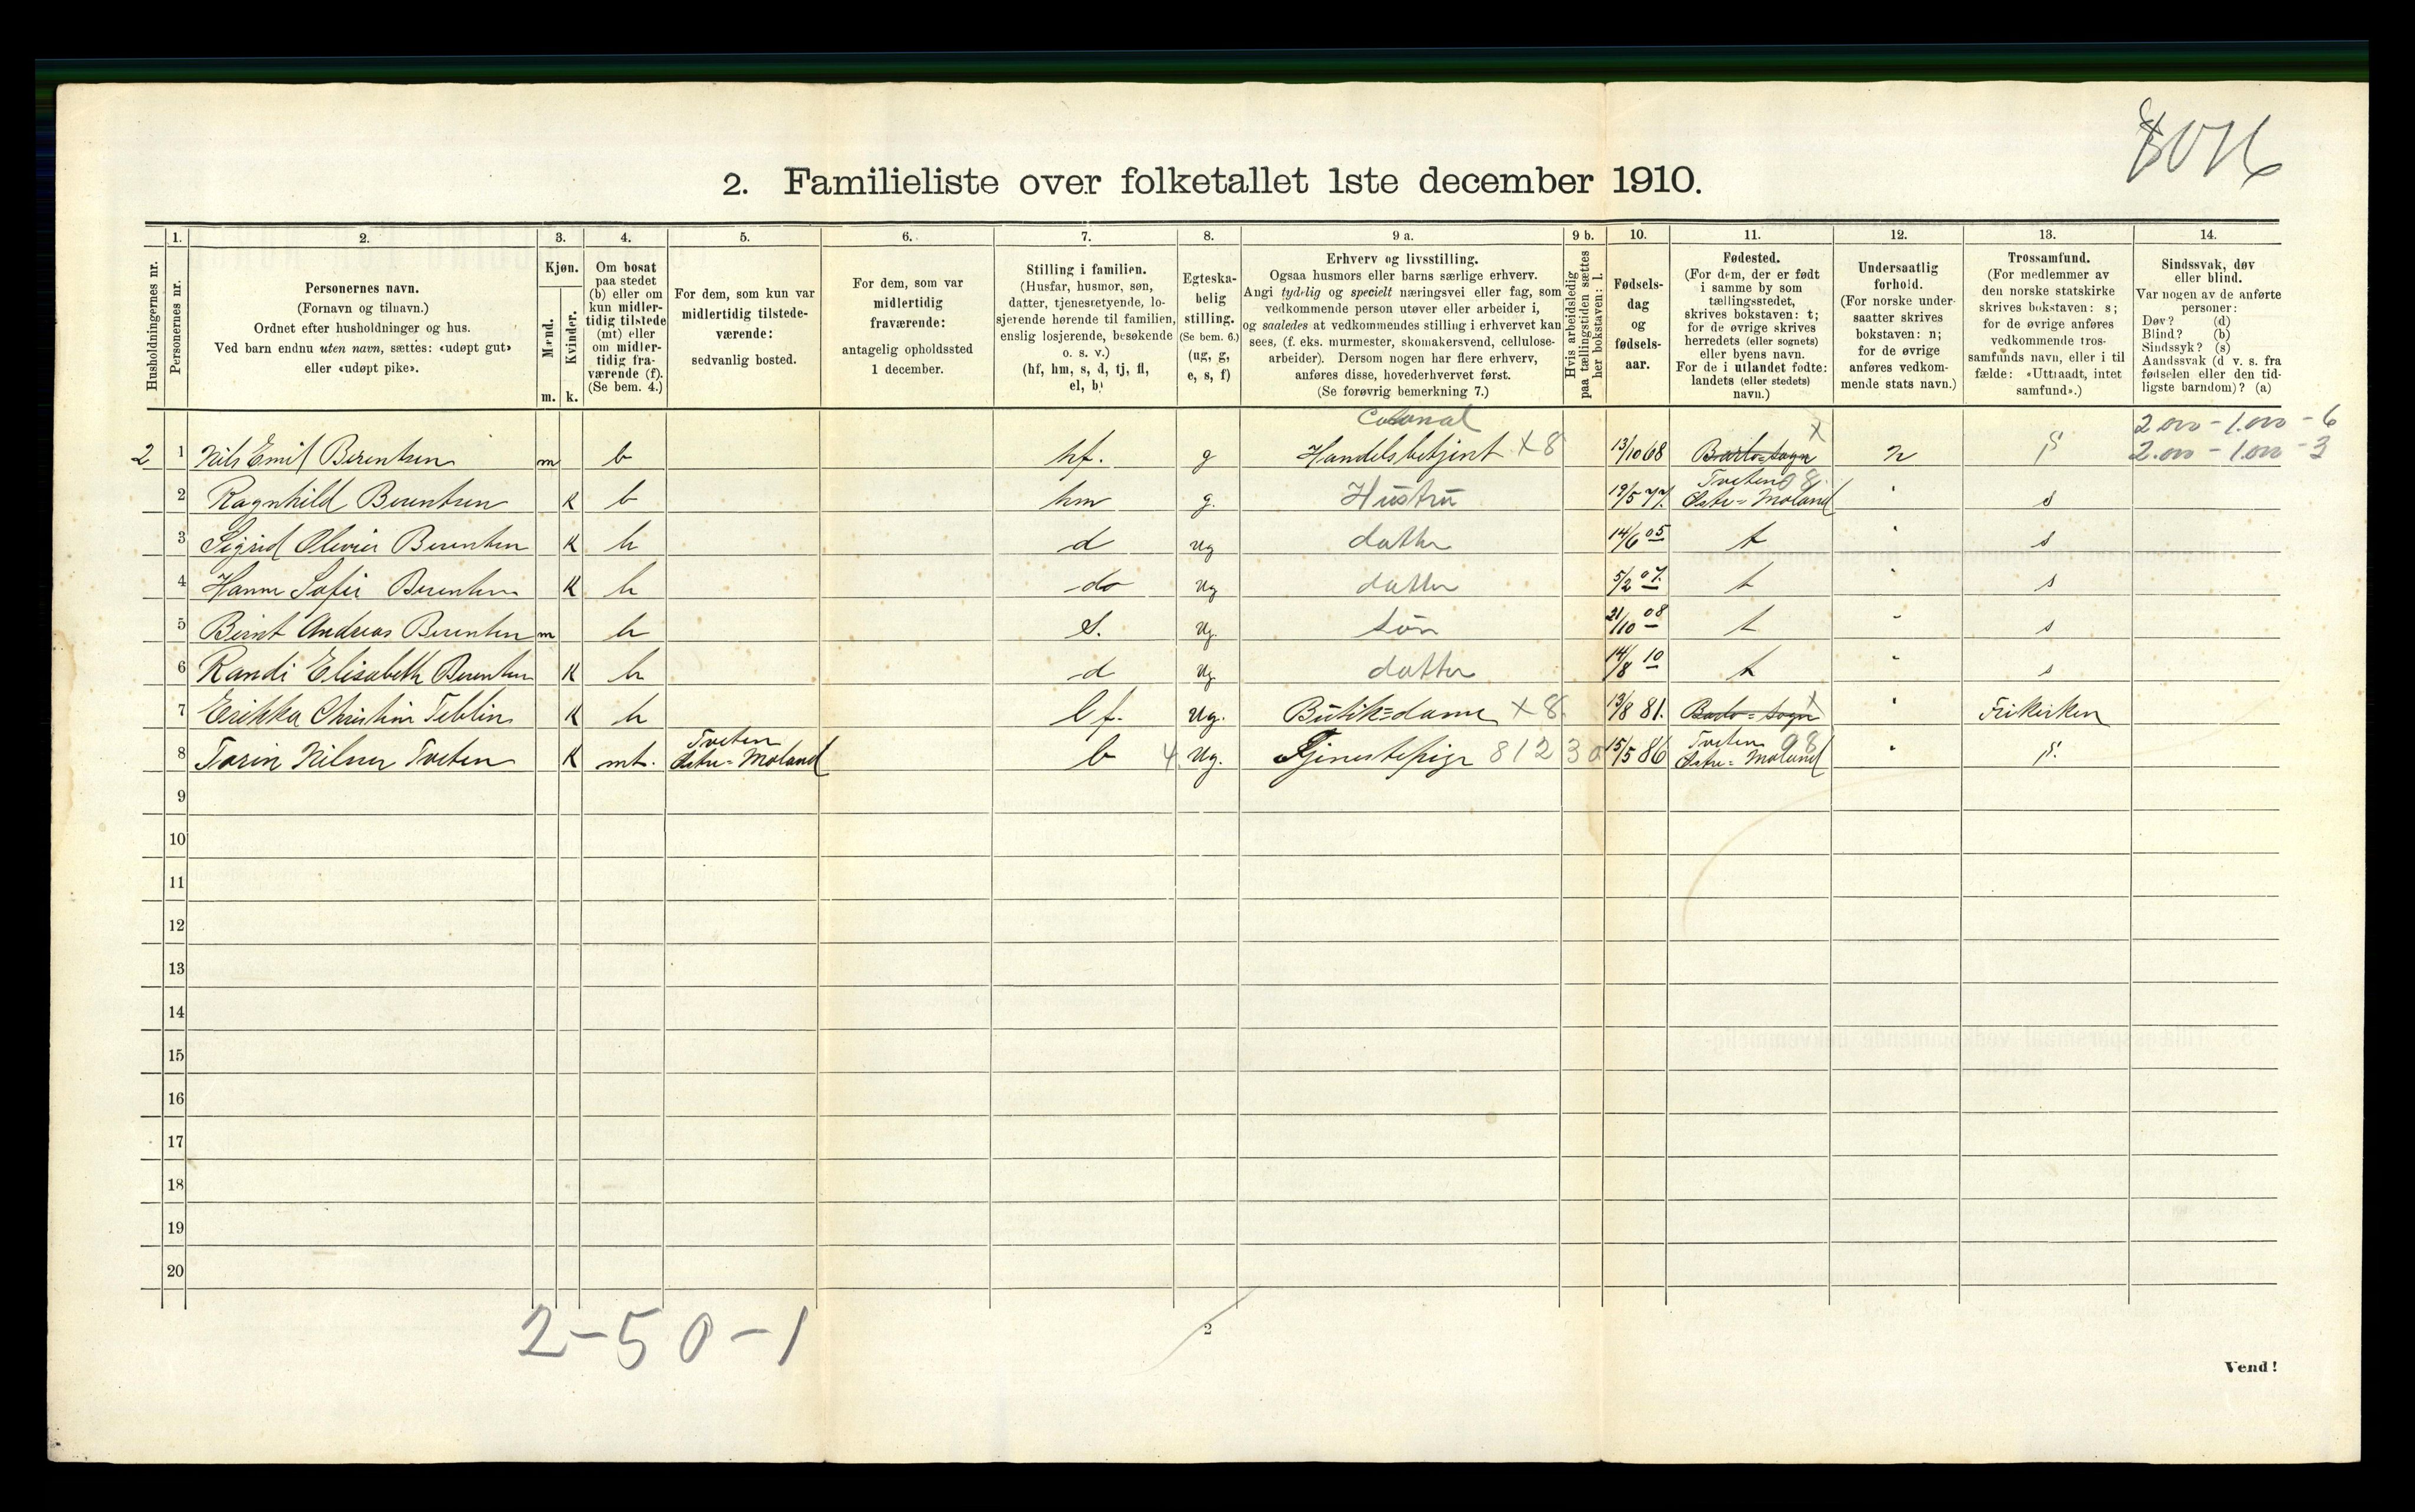 2. Familieliste over folketallet 1ste december 1910.
Husholdningernes nr.
1. Personernes nr.
2. Personernes navn.
(Fornavn og tilnavn.)
Ordnet efter husholdninger og hus.
Ved barn endnu uten navn, sættes: «udøpt gut»
eller «udøpt pike».
3. Kjøn.
Mænd. m.
Kvinder. k.
4. Om bosat
paa stedet
(b) eller om
kun midler-
tidig tilstede
(mt) eller
om midler-
tidig fra-
værende (f).
(Se bem. 4.)
5. For dem, som kun var
midlertidig tilstede-
værende:
sedvanlig bosted.
6. For dem, som var
midlertidig
fraværende:
antagelig opholdssted
1 december.
7. Stilling i familien.
(Husfar, husmor, søn,
datter, tjenestetyende, lo-
sjerende hørende til familien,
enslig losjerende, besøkende
o. s. v.)
(hf, hm, s, d, tj, fl,
el, b)
8. Egteska-
belig
stilling.
(Se bem. 6.)
(ug, g,
e, s, f)
9 a. Erhverv og livsstilling.
Ogsaa husmors eller barns særlige erhverv.
Angi tydelig og specielt næringsvei eller fag, som
vedkommende person utøver eller arbeider i,
og saaledes at vedkommendes stilling i erhvervet kan
sees, (f. eks. murmester, skomakersvend, cellulose-
arbeider). Dersom nogen har flere erhverv,
anføres disse, hovederhvervet først.
(Se forøvrig bemerkning 7.)
9 b. Hvis arbeidsledig
paa tællingstiden sættes
her bokstaven: l.
10. Fødsels-
dag
og
fødsels-
aar.
11. Fødested.
(For dem, der er født
i samme by som
tællingsstedet,
skrives bokstaven: t;
for de øvrige skrives
herredets (eller sognets)
eller byens navn.
For de i utlandet fødte:
landets (eller stedets)
navn.)
12. Undersaatlig
forhold.
(For norske under-
saatter skrives
bokstaven: n;
for de øvrige
anføres vedkom-
mende stats navn.)
13. Trossamfund.
(For medlemmer av
den norske statskirke
skrives bokstaven: s;
for de øvrige anføres
vedkommende tros-
samfunds navn, eller i til-
fælde: «Uttraadt, intet
samfund».)
14. Sindssvak, døv
eller blind.
Var nogen av de anførte
personer:
Døv? (d)
Blind? (b)
Sindssyk? (s)
Aandssvak (d v. s. fra
fødselen eller den tid-
ligste barndom)? (a)
Colonial 2.000 - 1.000 - 6
2 1 Nils Emil Berentsen m b hf. g Handelsbetjent X 8 13/10 68 Barbo=sogn X n s 2.000 - 1.000 - 3
2 Ragnhild Berentsen K b hm g. Hustru 19/5 77. Tveten 98 Østre=Moland " s
3 Sigrid Olivie Berentsen K b d ug datter 14/6 05 t " s
4 Hanne Sofie Berentsen K b do ug datter 5/2 07. t " s
5 Bernt Andreas Berentsen m b s. ug. søn 21/10 08 t " s
6 Randi Elisabeth Berentsen K b d ug datter 14/8 10 t " s
7 Erikka Christine Teblin K b ug. Butik=dame X 8. 13/8 81. Barbo=sogn X " Frikirken
8 Torin Nilsen Tveten K mt. Tveten Østre=Moland b 4. ug. Tjenestepige 8 1 2 3 0 15/5 86 Tveten 98 Østre=Moland " s.
9
10
11
12
13
14
15
16
17
18
19
20
2-50-1
2
Vend!